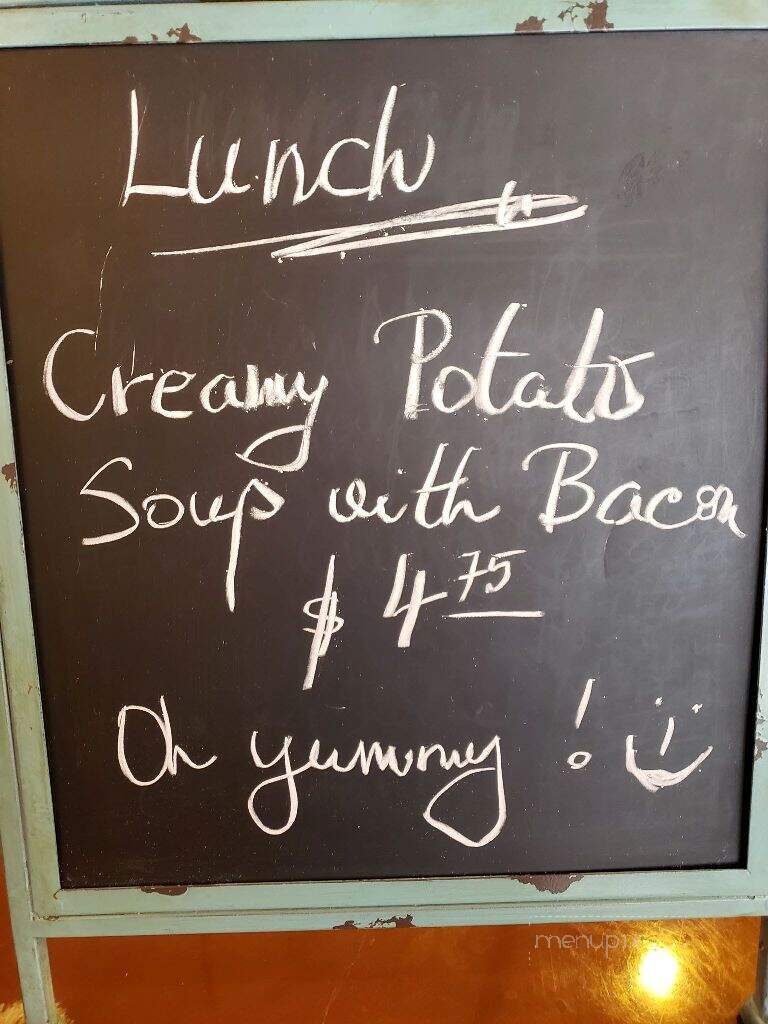 Lunch
Creamy Potato
Soup with Bacon
$ 4 75
Oh yummy !
menupix